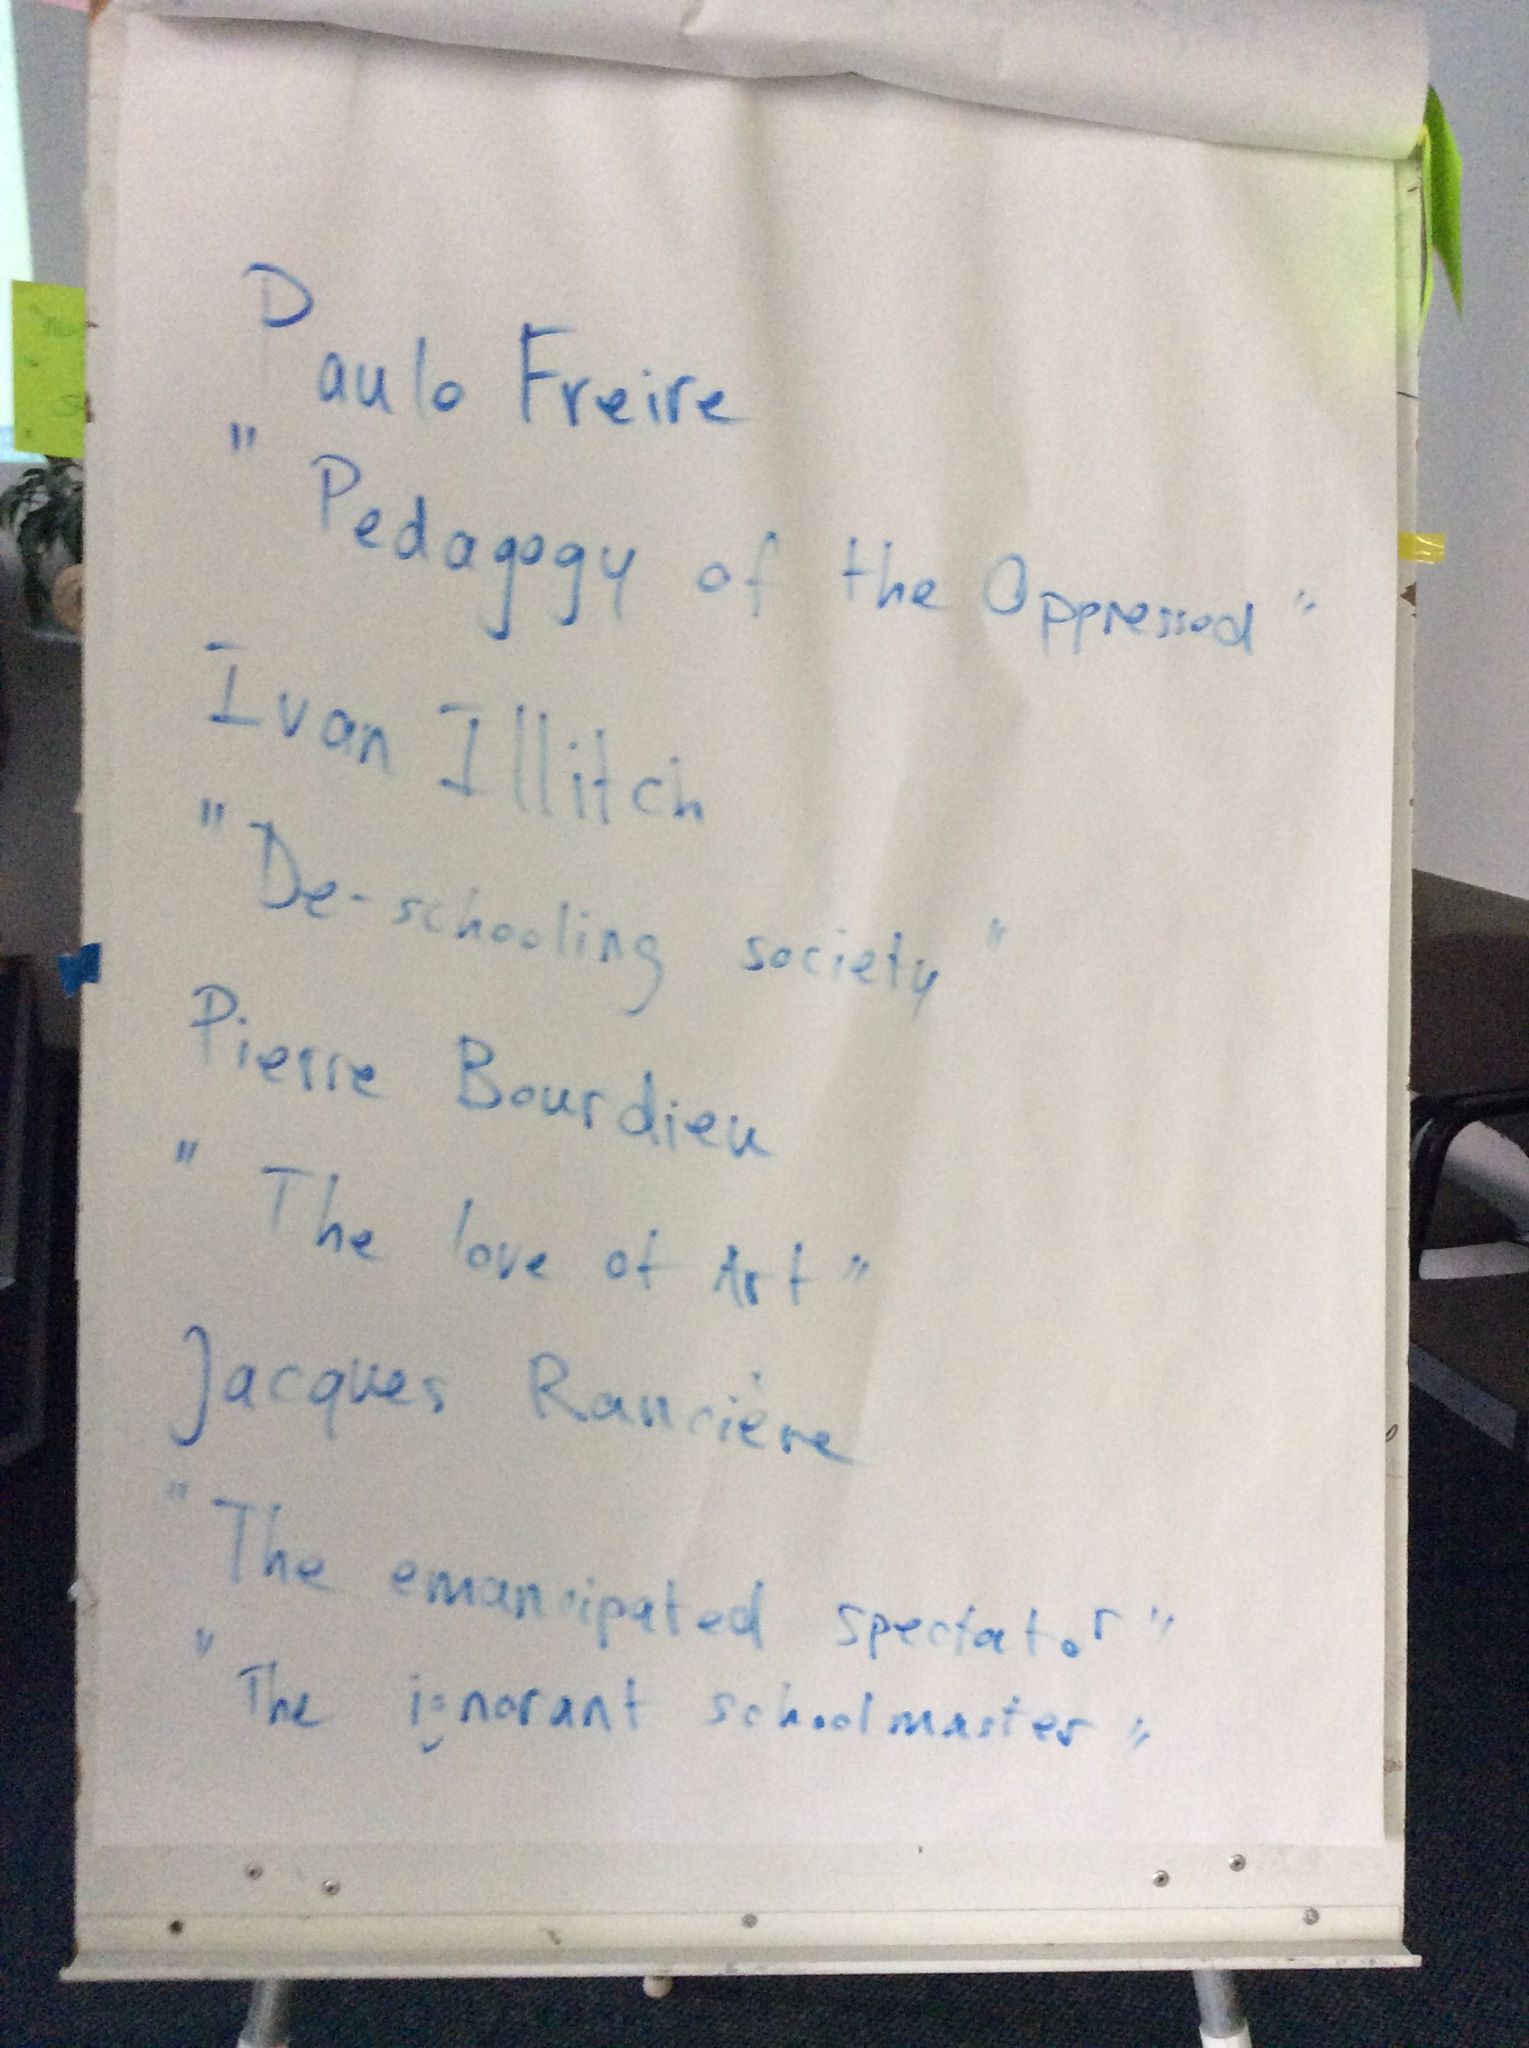 Paulo Freire
"Pedagogy of the Oppressed"
Ivan Illitch
"De-schooling society"
Pierre Bourdieu
"The love of Art"
Jacques Rancière
"The emancipated spectator"
"The ignorant schoolmaster"